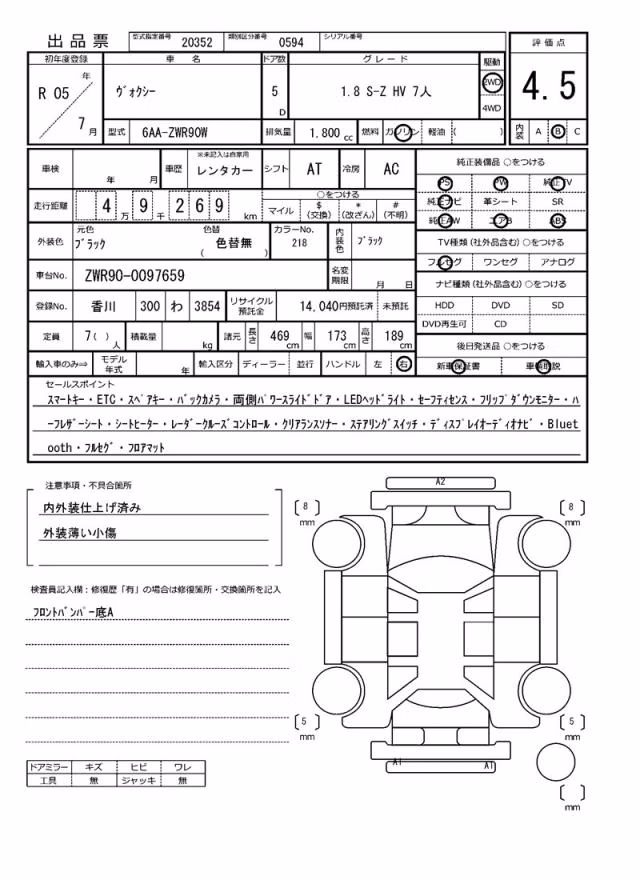 出品票 型式指定番号 20352 類別区分番号 0594 シリアル番号
初年度登録 車名 ドア数 グレード 駆動 評価点
R 05 年 7 月 ヴォクシー 5 D 1.8 S-Z HV 7人 2WD 4WD 4.5
型式 6AA-ZWR90W 排気量 1.800 cc 燃料 ガソリン 軽油 ( ) 内装 A B C
車検 年 月 車歴 ※未記入は自家用 レンタカー シフト AT 冷房 AC 純正装備品 ○をつける
PS PW 純正TV
走行距離 4 万 9 千 2 6 9 km ○をつける 純正ナビ 革シート SR
マイル $ (交換) * (改ざん) # (不明) 純正AW エアB ABS
外装色 元色 ブラック 色替 色替無 ( ) カラーNo. 218 内装色 ブラック TV種類 (社外品含む) ○をつける
フルセグ ワンセグ アナログ
車台No. ZWR90-0097659 名変期限 月 日 ナビ種類 (社外品含む) ○をつける
登録No. 香川 300 わ 3854 リサイクル預託金 14,040円預託済 未預託 HDD DVD SD
DVD再生可 CD
定員 7( ) 人 積載量 kg 諸元 長さ 469 cm 幅 173 cm 高さ 189 cm 後日発送品 ○をつける
輸入車のみ⇒ モデル年式 年 輸入区分 ディーラー 並行 ハンドル 左 右 新車保証書 車輌取説
セールスポイント
スマートキー・ETC・スペアキー・バックカメラ・両側パワースライドドア・LEDヘッドライト・セーフティセンス・フリップダウンモニター・ハ
ーフレザーシート・シートヒーター・レーダークルーズコントロール・クリアランスソナー・ステアリングスイッチ・ディスプレイオーディオナビ・Bluet
ooth・フルセグ・フロアマット
注意事項・不具合箇所
内外装仕上げ済み
外装薄い小傷
検査員記入欄：修復歴「有」の場合は修復箇所・交換箇所を記入
フロントバンパー底A
ドアミラー キズ ヒビ ワレ
工具 無 ジャッキ 無
A2
8 mm
8 mm
5 mm
5 mm
A1 A1
mm